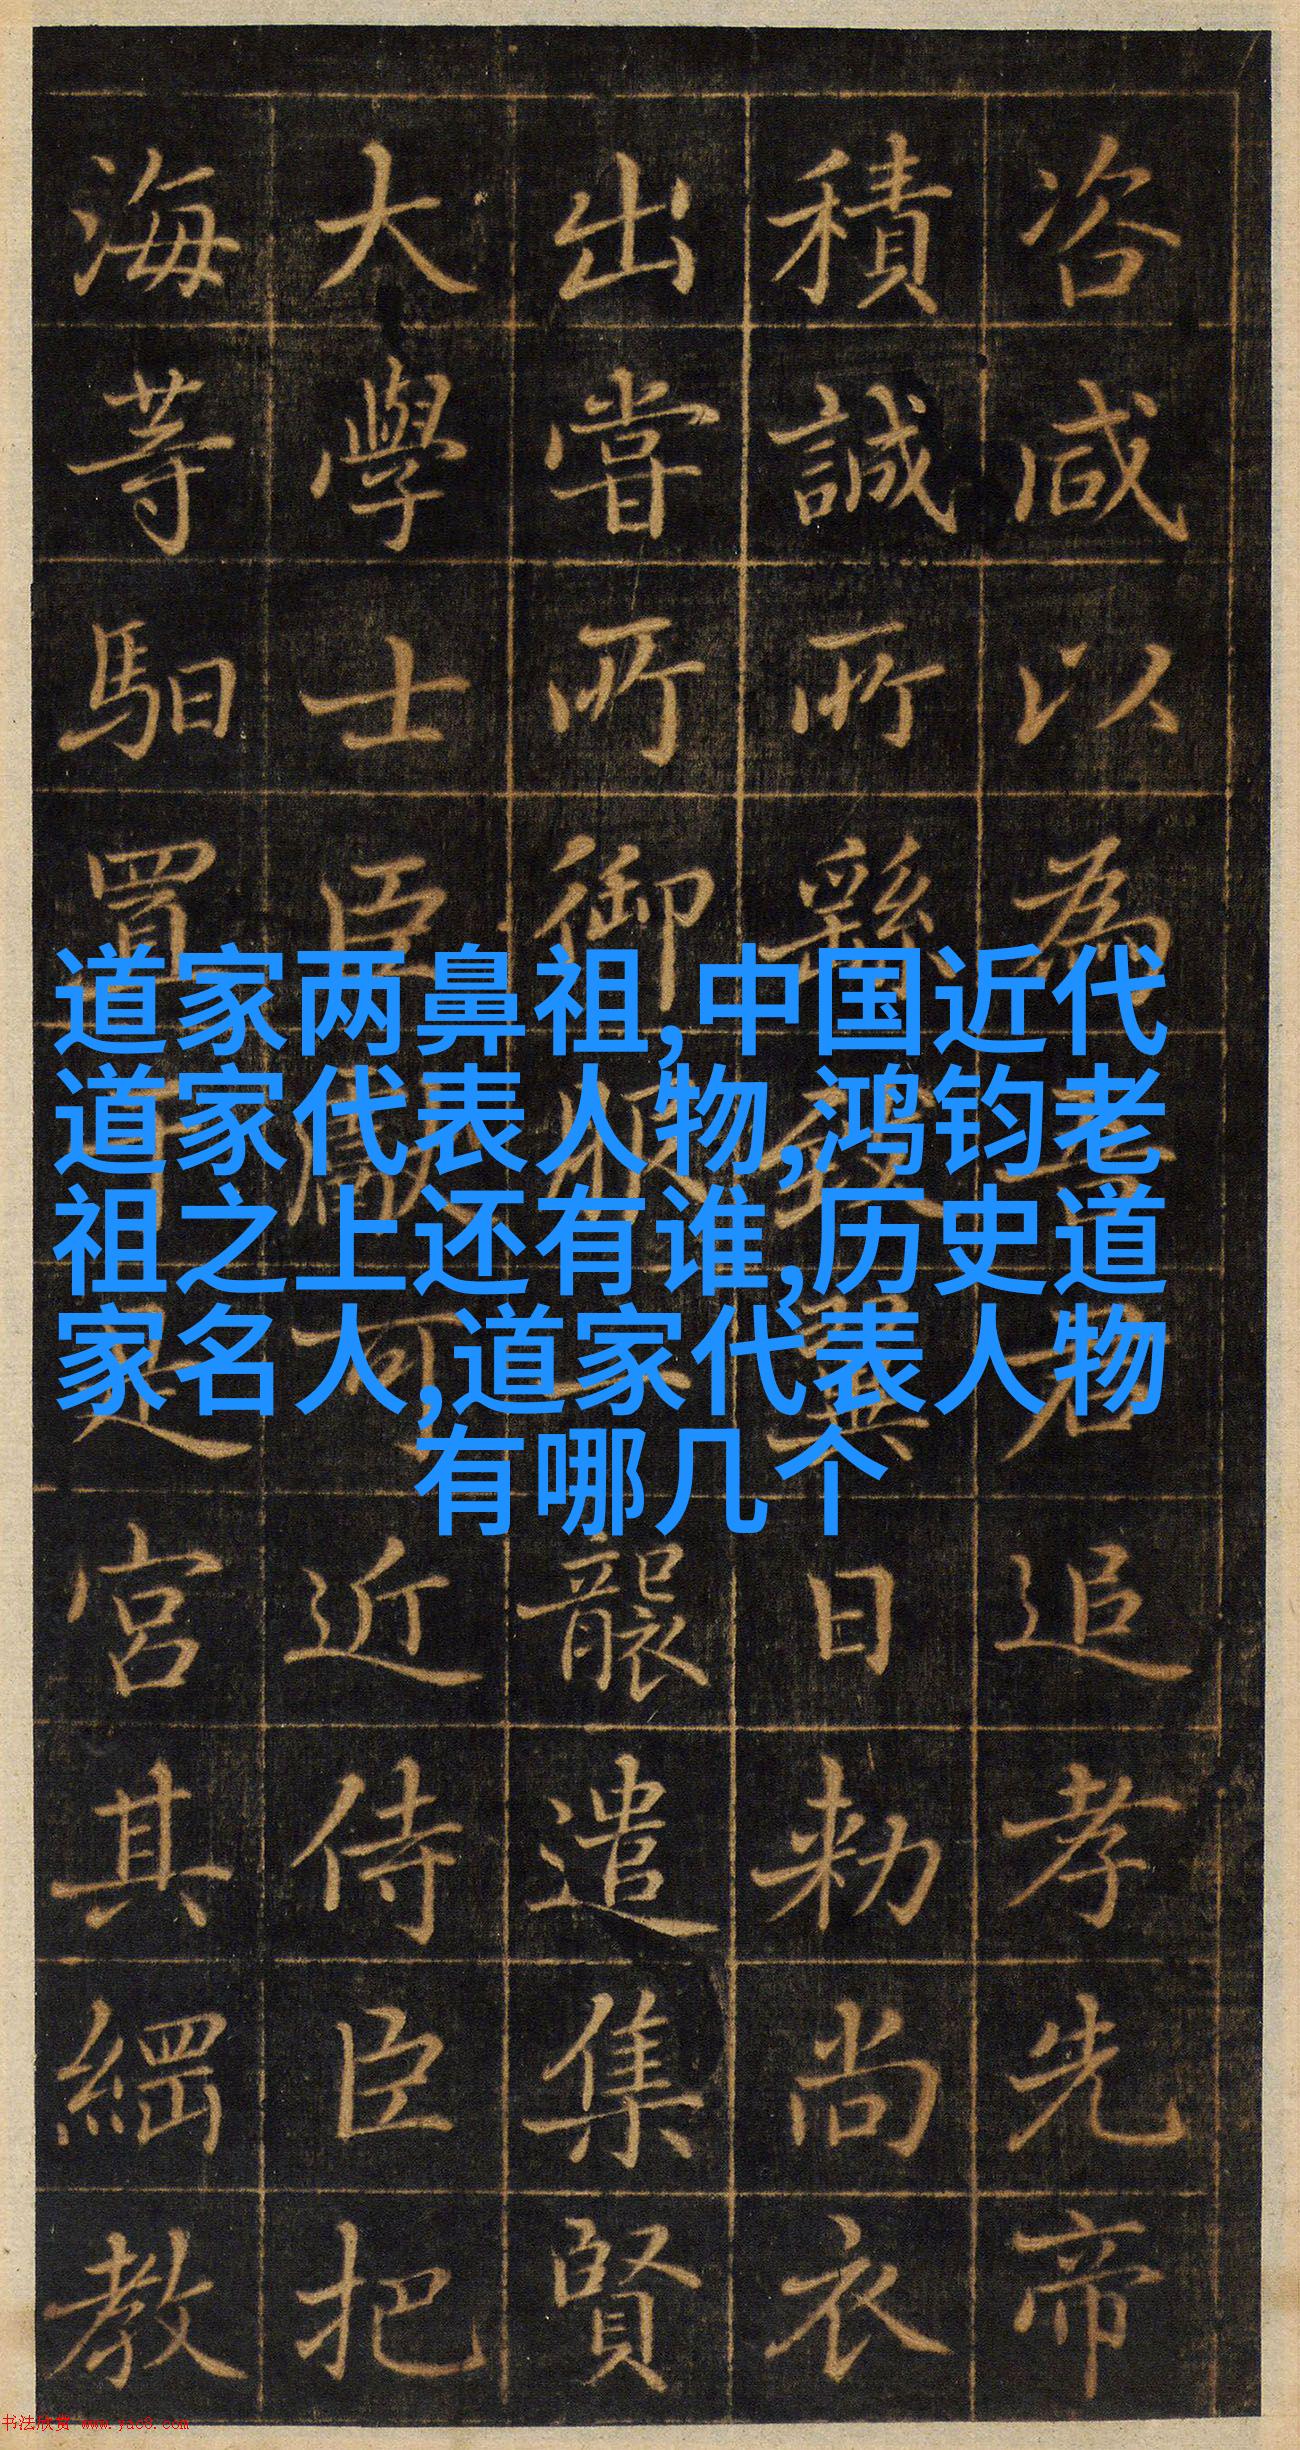 咨咸以為君追孝先帝
積誠所繇日勑尚衣
出嘗所御服一襲遣集賢
大學士臣可近侍臣把
海等馹置是宮其綱教
道家两鼻祖,中国近代
道家代表人物,鸿钧老
祖之上还有谁,历史道
家名人,道家代表人物
有哪几个
书法欣赏 www.yac8.com